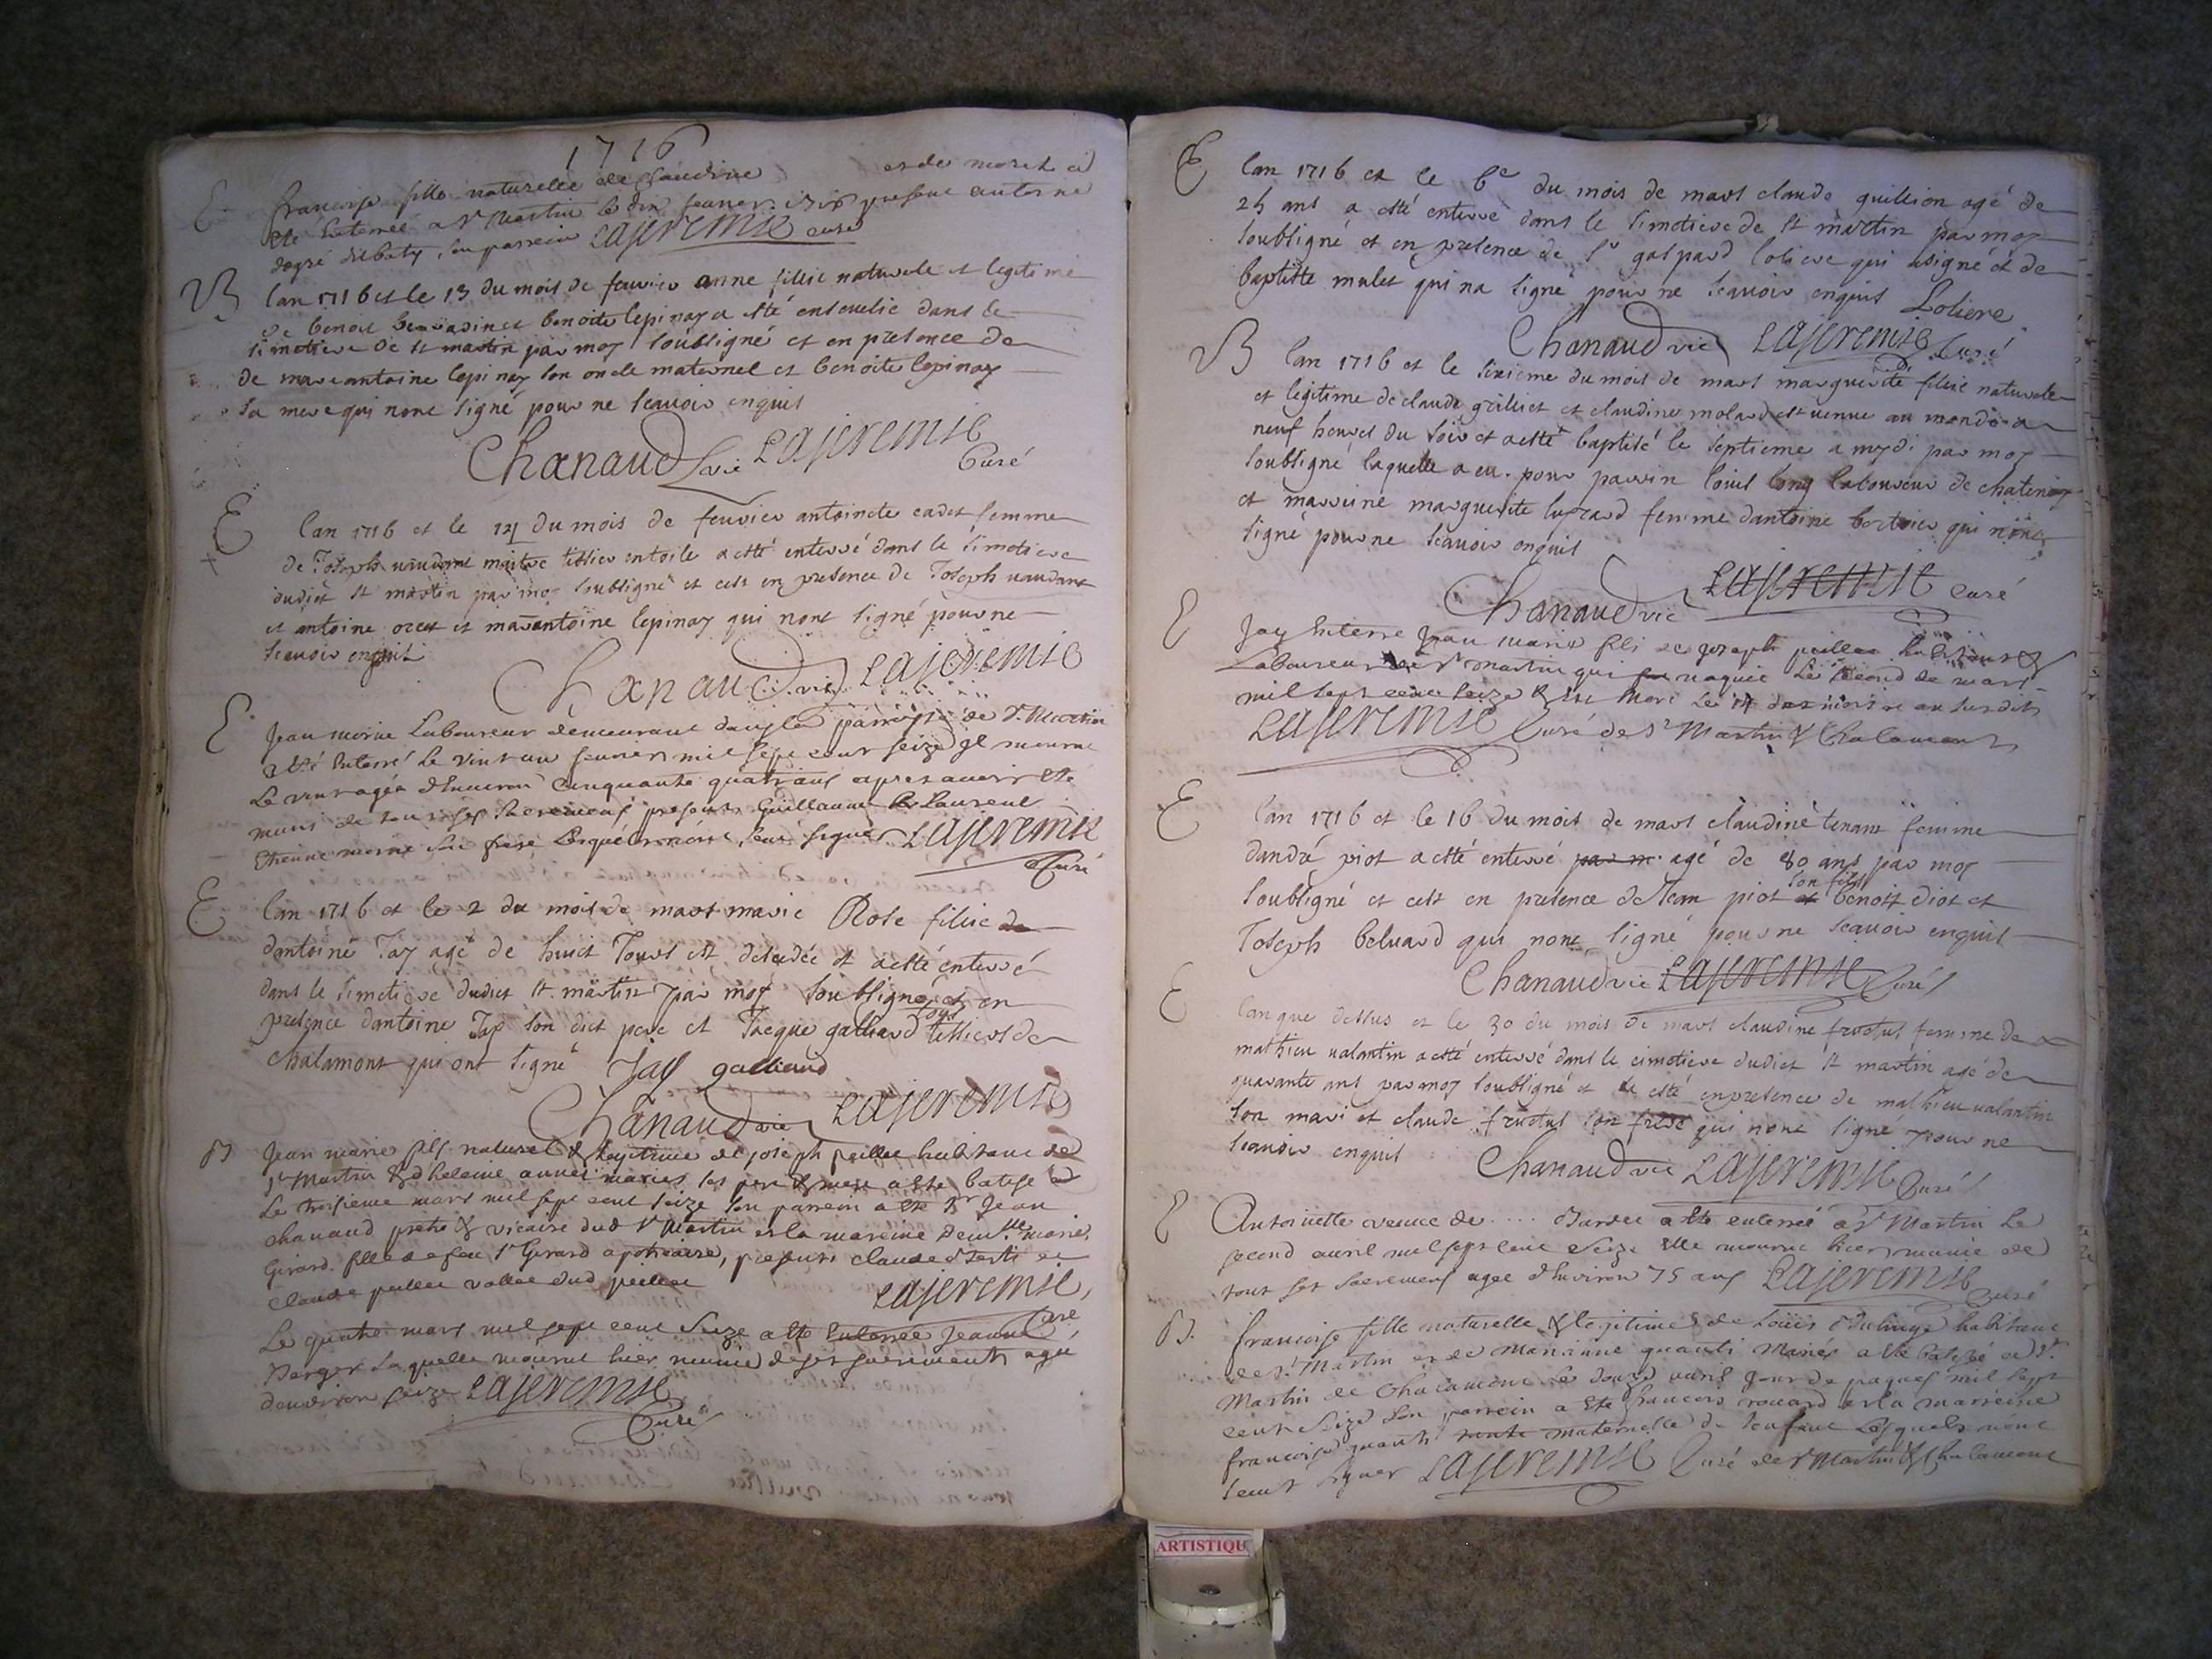 1716
E francoise fille naturelle de Claudine et de morel a
ete enterree a St Martin le dix feuner 1716 presens antoine
son parrein Lajeremie curé
B lan 1716 et le 13 du mois de feuvrier anne fillie naturele et legitime
de benoit et benoite lepinay a esté ensevelie dans le
simetiere de st martin par moy soubsigné et en presence de
de marcantoine lepinay son oncle maternel et benoite lepinay
sa mere qui nont signé pour ne scauoir enquis
Chanaud vic Lajeremie
Curé
E lan 1716 et le 14 du mois de feuvrier antoinete cadet femme
de Joseph vaudant maitre tissier en toile a esté enterré dans le simetiere
dudict st martin par moy soubsigné et cest en presence de Joseph vaudant
et antoine et marcantoine lepinay qui nont signé pour ne
scauoir enquis
Chanaud vic Lajeremie
E Jean morin Laboureur demeurant dans la parroisse de St Martin
a Eté Enterré Le vint un feurier mil sept cent seize il mourut
Le vint agée dEnuiron Cinquante quatr ans apres auoir Eté
muni de tous ses sacremens presents Guillaume Laureul
Etienne morin son frere Lesquels nont seu signer Lajeremie
Curé
E lan 1716 et le 2 du mois de mars marie Rose fillie de
dantoine Jay agé de huict Jours est decedée et a esté enterré
dans le simetiere dudict st. martin par moy soubsigné et en
presence dantoine Jay son dict pere et Jacque galliard tous tissiers de
chalamont qui ont signé Jay galliard
Chanaud vic Lajeremie
B Jean marie fils naturel & legitime de joseph peillee habitant de
St Martin & dheleine mariés ses pere & mere a Ete batisé
Le troisieme mars mil sept cent seize son parrein a Ete Sr Jean
chanaud pretre & vicaire dud St Martin et la mareine Demlle marie
Girard fille de feu Sr Girard apoticaire, presents claude et
Claude peillee vallee dud peillee Lajeremie,
Curé
Le quatre mars mil sept cent Seize a Ete Enterrée Jeanne
Berger Laquelle mourut hier munie de ses sacrements agé
denuiron seize Lajeremie
Curé
E lan 1716 et le 6e du mois de mars claude guillion agé de
25 ans a esté enterré dans le simetiere de st martin par moy
soubsigné et en presence de sr gaspard loliere qui a signé et de
baptiste mulet qui na signé pour ne scauoir enquis Loliere
Chanaud vic Lajeremie Curé
B lan 1716 et le sixieme du mois de mars marguerite fillie naturele
et legitime de claude grilliet et claudine molard est venue au monde a
neuf heures du soir et a esté baptisé le septieme a mydi par moy
soubsigné laquelle a eu pour parrin louis long laboureur de chatenay
et marreine marguerite luzard femme dantoine bertrier qui nont
signé pour ne scauoir enquis
Chanaud vic Lajeremie Curé
E Jay Enterre Jean marie fils de joseph peillee habitant &
Laboureur a St martin qui naquit Le second de mars
mil sept cent seize & Est Mort Le 14 du mois et an susdits
Lajeremie Curé de St Martin & Chalamont
E lan 1716 et le 16 du mois de mars claudine tenant femme
dandré piot a esté enterré par m. agé de 80 ans par moy
soubsigné et cest en presence de Jean piot son fils et benoist piot et
Joseph beluard qui nont signé pour ne scauoir enquis
Chanaud vic Lajeremie Curé
E lan que dessus et le 30 du mois de mars claudine frustus femme de
mathieu valantin a esté enterré dans le cimetiere dudict st martin agé de
quarante ans par moy soubsigné et a esté en presence de mathieu valantin
son mari et claude frustus son frere qui nont signe pour ne
scauoir enquis Chanaud vic Lajeremie Curé
E Antoinette veuue de .... Bardet a Ete enterrée a St Martin Le
second auril mil sept cent Seize Elle mourut hier munie de
tout ses sacremens agee dEnuiron 75 ans Lajeremie
Curé
B. francoise fille naturelle & legitime de Loüis Dubuige habitant
de St Martin et de Marianne quanti Mariés a Eté batisé a St
Martin de Chalamont Le douze auril Jour de paques mil sept
cent Seize Son parrein a Ete francois rouard et la marreine
francoise quanti tante maternelle de lenfant Lesquels nont
seut signer Lajeremie Curé de St Martin & Chalamont
ARTISTIQU